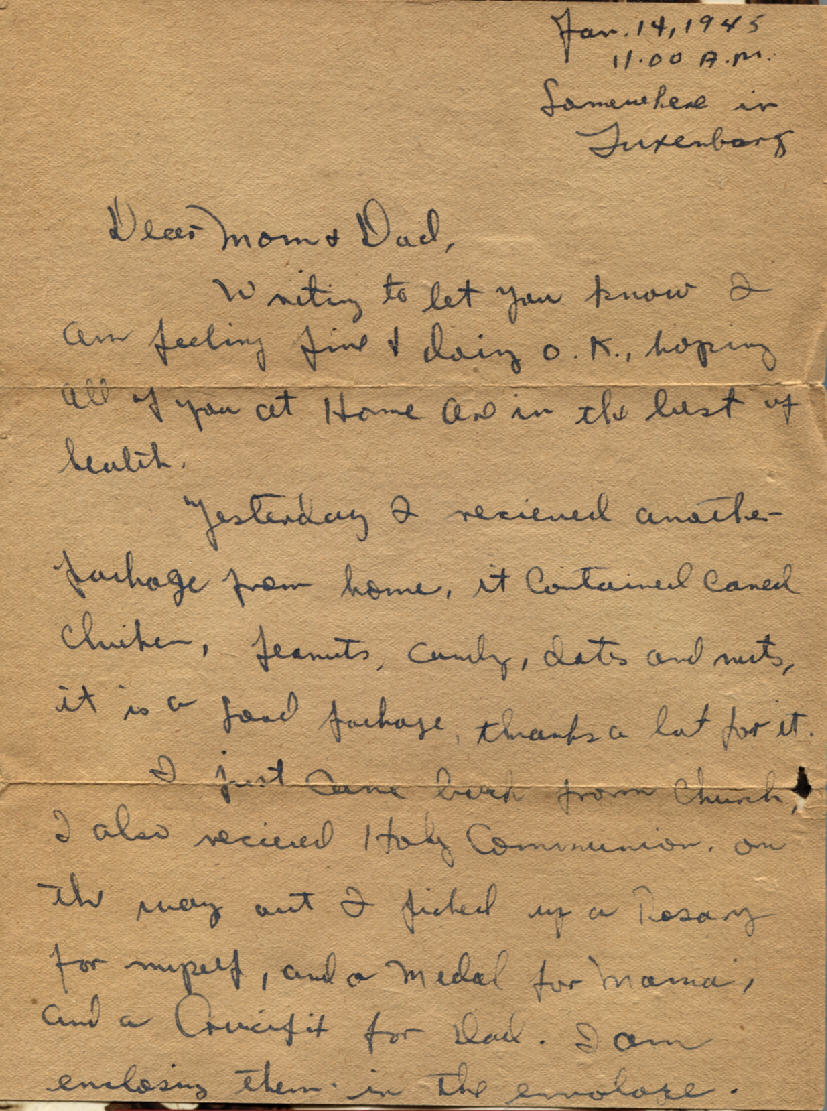 Jan. 14, 1945
11:00 A.M.
Somewhere in
Luxenbarg
Dear Mom & Dad,
Writing to let you know I
am feeling fine & doing O.K., hoping
all of you at Home are in the best of
health.
Yesterday I recieved another
package from home, it contained caned
chicken, peanuts, candy, dates and nuts,
it is a good package, thanks a lot for it.
I just came back from church,
I also recieved Holy Communion. on
the way out I picked up a Rosary
for myself, and a medal for Mama,
and a Crucifit for Dad. I am
enclosing them in the envolope.